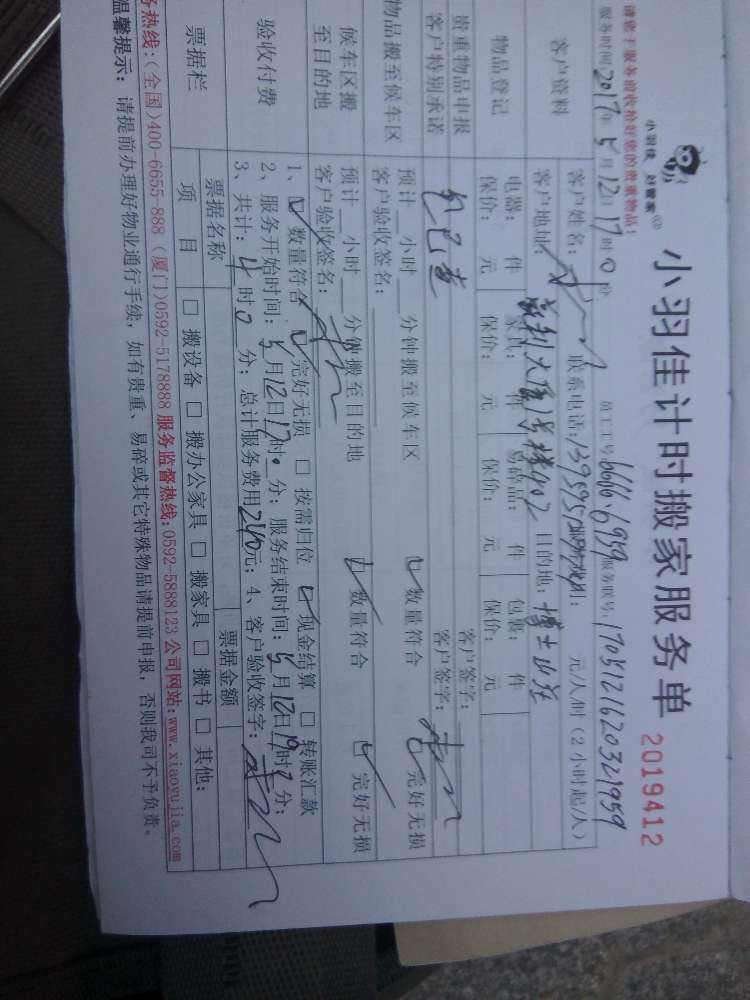 小羽佳计时搬家服务单
2019412
小羽佳 好管家
请您于服务前收检好您的贵重物品!
服务时间: 2017年5月12日17时0分 员工工号: 6666.6959 服务账号: 1705121620321959
客户资料
客户姓名: 联系电话: 元/人/时(2小时起/人)
客户地址: 目的地: 博士山庄
物品登记
电器: 件 家具: 件 易碎品: 件 包裹: 件
保价: 元 保价: 元 保价: 元 保价: 元
贵重物品申报 客户签字:
客户特别承诺 客户签字:
物品搬至候车区
预计 小时 分钟搬至候车区 数量符合 完好无损
客户验收签名:
候车区搬至目的地
预计 小时 分钟搬至目的地 数量符合 完好无损
客户验收签名:
验收付费
1、 数量符合 完好无损 按需归位 现金结算 转账汇款
2、服务开始时间: 5月12日17时0分; 服务结束时间: 5月12日19时 分;
3、共计: 4时0分; 总计服务费用240元; 4、客户验收签字:
票据栏
票据名称 票据金额
项目 搬设备 搬办公家具 搬家具 搬书 其他:
务热线:(全国)400-6655-888 (厦门)0592-5178888 服务监督热线:0592-5888123 公司网站:www.xiaoyujia.com
温馨提示: 请提前办理好物业通行手续, 如有贵重、易碎或其它特殊物品请提前申报, 否则我司不予负责。